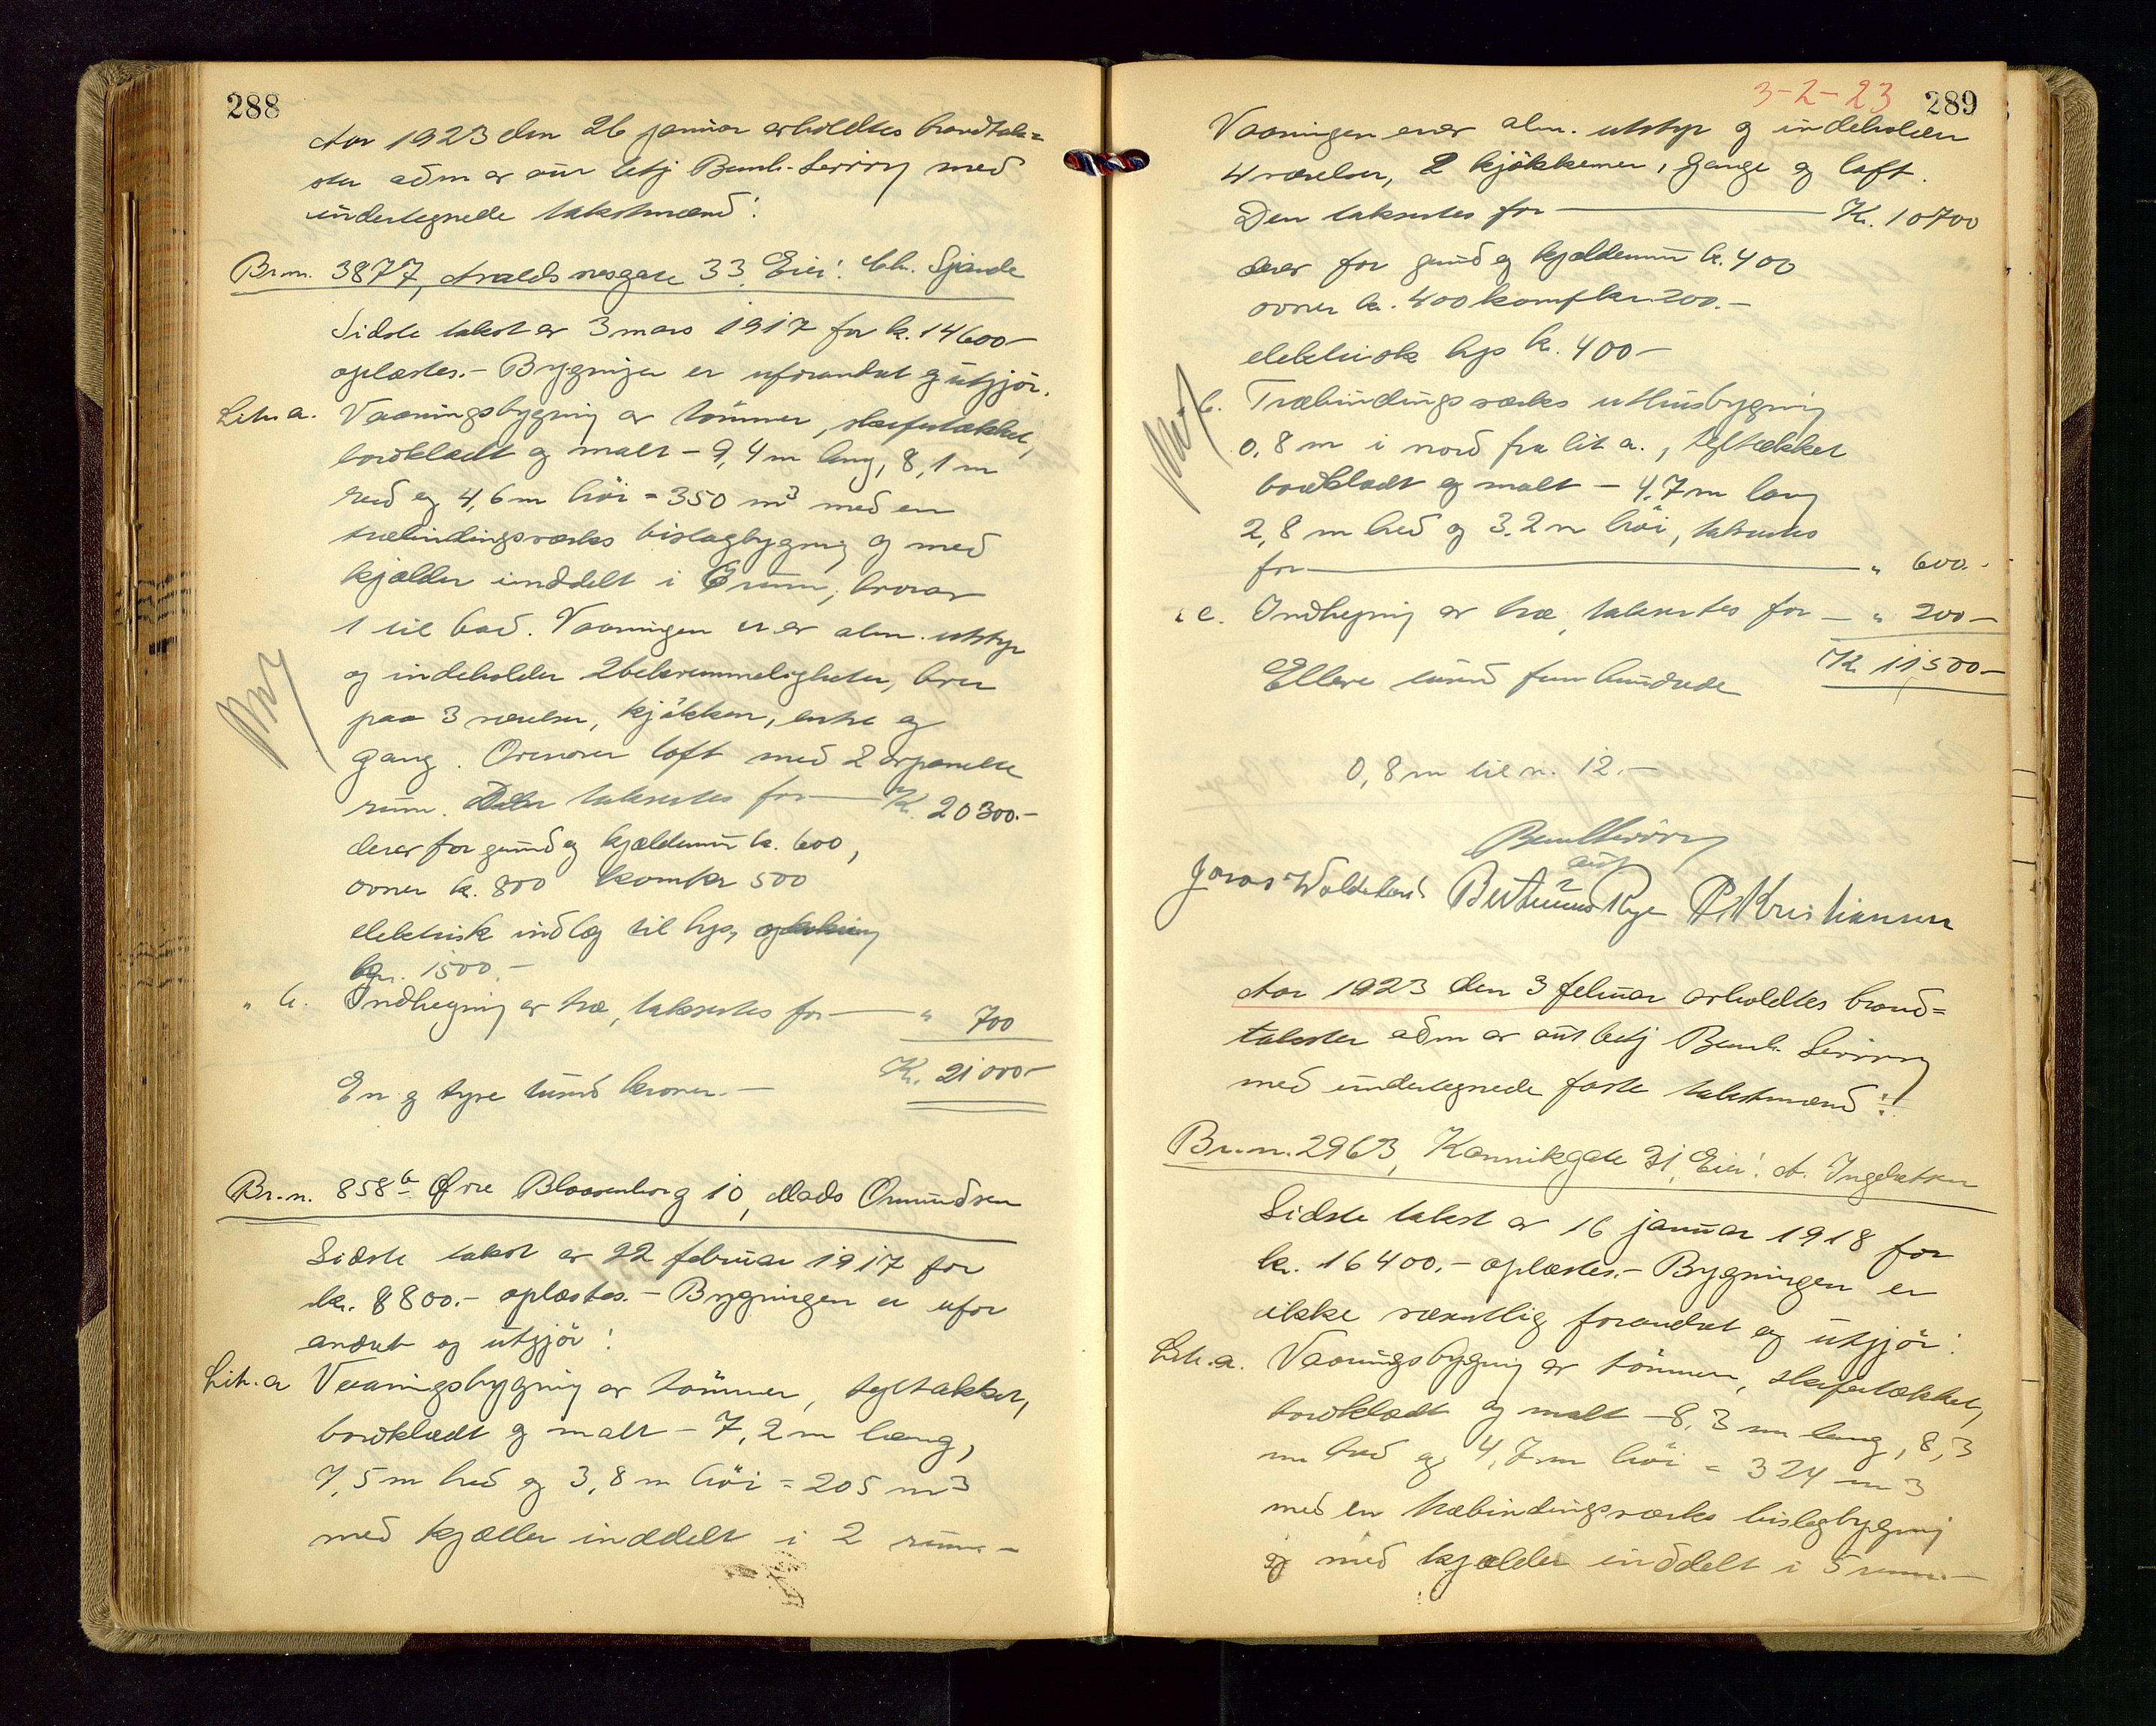 288
Aar 1923 den 26 januar avholdtes brandtak=
ster adm av aut betj Bernh. Servoy med
undertegnede takstmænd:
Br.nr. 3877, Avaldsnesgate 33, Eier: Chr. Sjande
Sidste takst av 3 mars 1917 for kr. 14600-
oplæstes.- Bygningen er uforandret og utgjör.
Litr. a. Vaaningsbygning av tömmer, skifertækket,
bordklædt og malt - 9,4 m lang, 8,1 m
bred og 4,6 m höi = 350 m3 med en
træbindingsverks bislagbygning og med
kjælder inddelt i 6 rum, hvorav
1 til bad. Vaaningen er av alm. utstyr
og indeholder 2 bekvemmeligheter, hver
paa 3 værelser, kjökken, entre og
gang. Ovenover loft med 2 avpanelte
rum. Den taksertes for — Kr. 20300.-
derav for grund og kjældermur kr. 600,
ovner kr. 800 komfkr 500
elektrisk indlæg til lys, og kokning
kr. 1500.-
" b. Indhegning av træ, taksertes for — " 700
Kr. 21000-
En og tyve tusind kroner.-
Br.n. 858b Øvre Blaasenborg 10, Mads Omundsen
Sidste takst av 22 februar 1917 for
kr. 8800.- oplæstes. - Bygningen er ufor
andret og utgjör:
Litr. a Vaaningsbygning av tömmer, tegltækket,
bordklædt og malt - 7,2 m lang,
7,5 m bred og 3,8 m höi = 205 m3
med kjælder inddelt i 2 rum -
3-2-23 289
Vaaningen er av alm. utstyr og indeholder
4 værelser, 2 kjökkener, gange og loft.
Den taksertes for — Kr. 10700
derav for grund og kjældermur kr. 400
ovner kr. 400 komfkr. 200.-
elektrisk lys kr. 400-
" b. Træbindingsverks uthusbygning
0,8 m i nord fra lit a., tegltækket
bordklædt og malt - 4,7 m lang
2,8 m bred og 3,2 m höi, taksertes
for — " 600.-
" c. Indhegning av træ, taksertes for - " 200-
Kr. 11500-
Elleve tusind fem hundrede
0,8 m til n. 12.-
Bernh Servoy
aut
Jonas Waldeland P. Kristiansen
Aar 1923 den 3 februar avholdtes brand=
takster adm av aut betj Bernh. Servoy
med undertegnede faste takstmænd:
Br.n. 2963, Kannikgate 31, Eier: A. Ingebretsen
Sidste takst av 16 januar 1918 for
kr. 16400.- oplæstes.- Bygningen er
ikke væsentlig forandret og utgjör:
Litr. a. Vaaningsbygning av tömmer, skifertækket,
bordklædt og malt - 8,3 m lang, 8,3
m bred og 4,7 m höi = 324 m3
med en træbindingsverks bislagbygning
og med kjælder inddelt i 5 rum.-